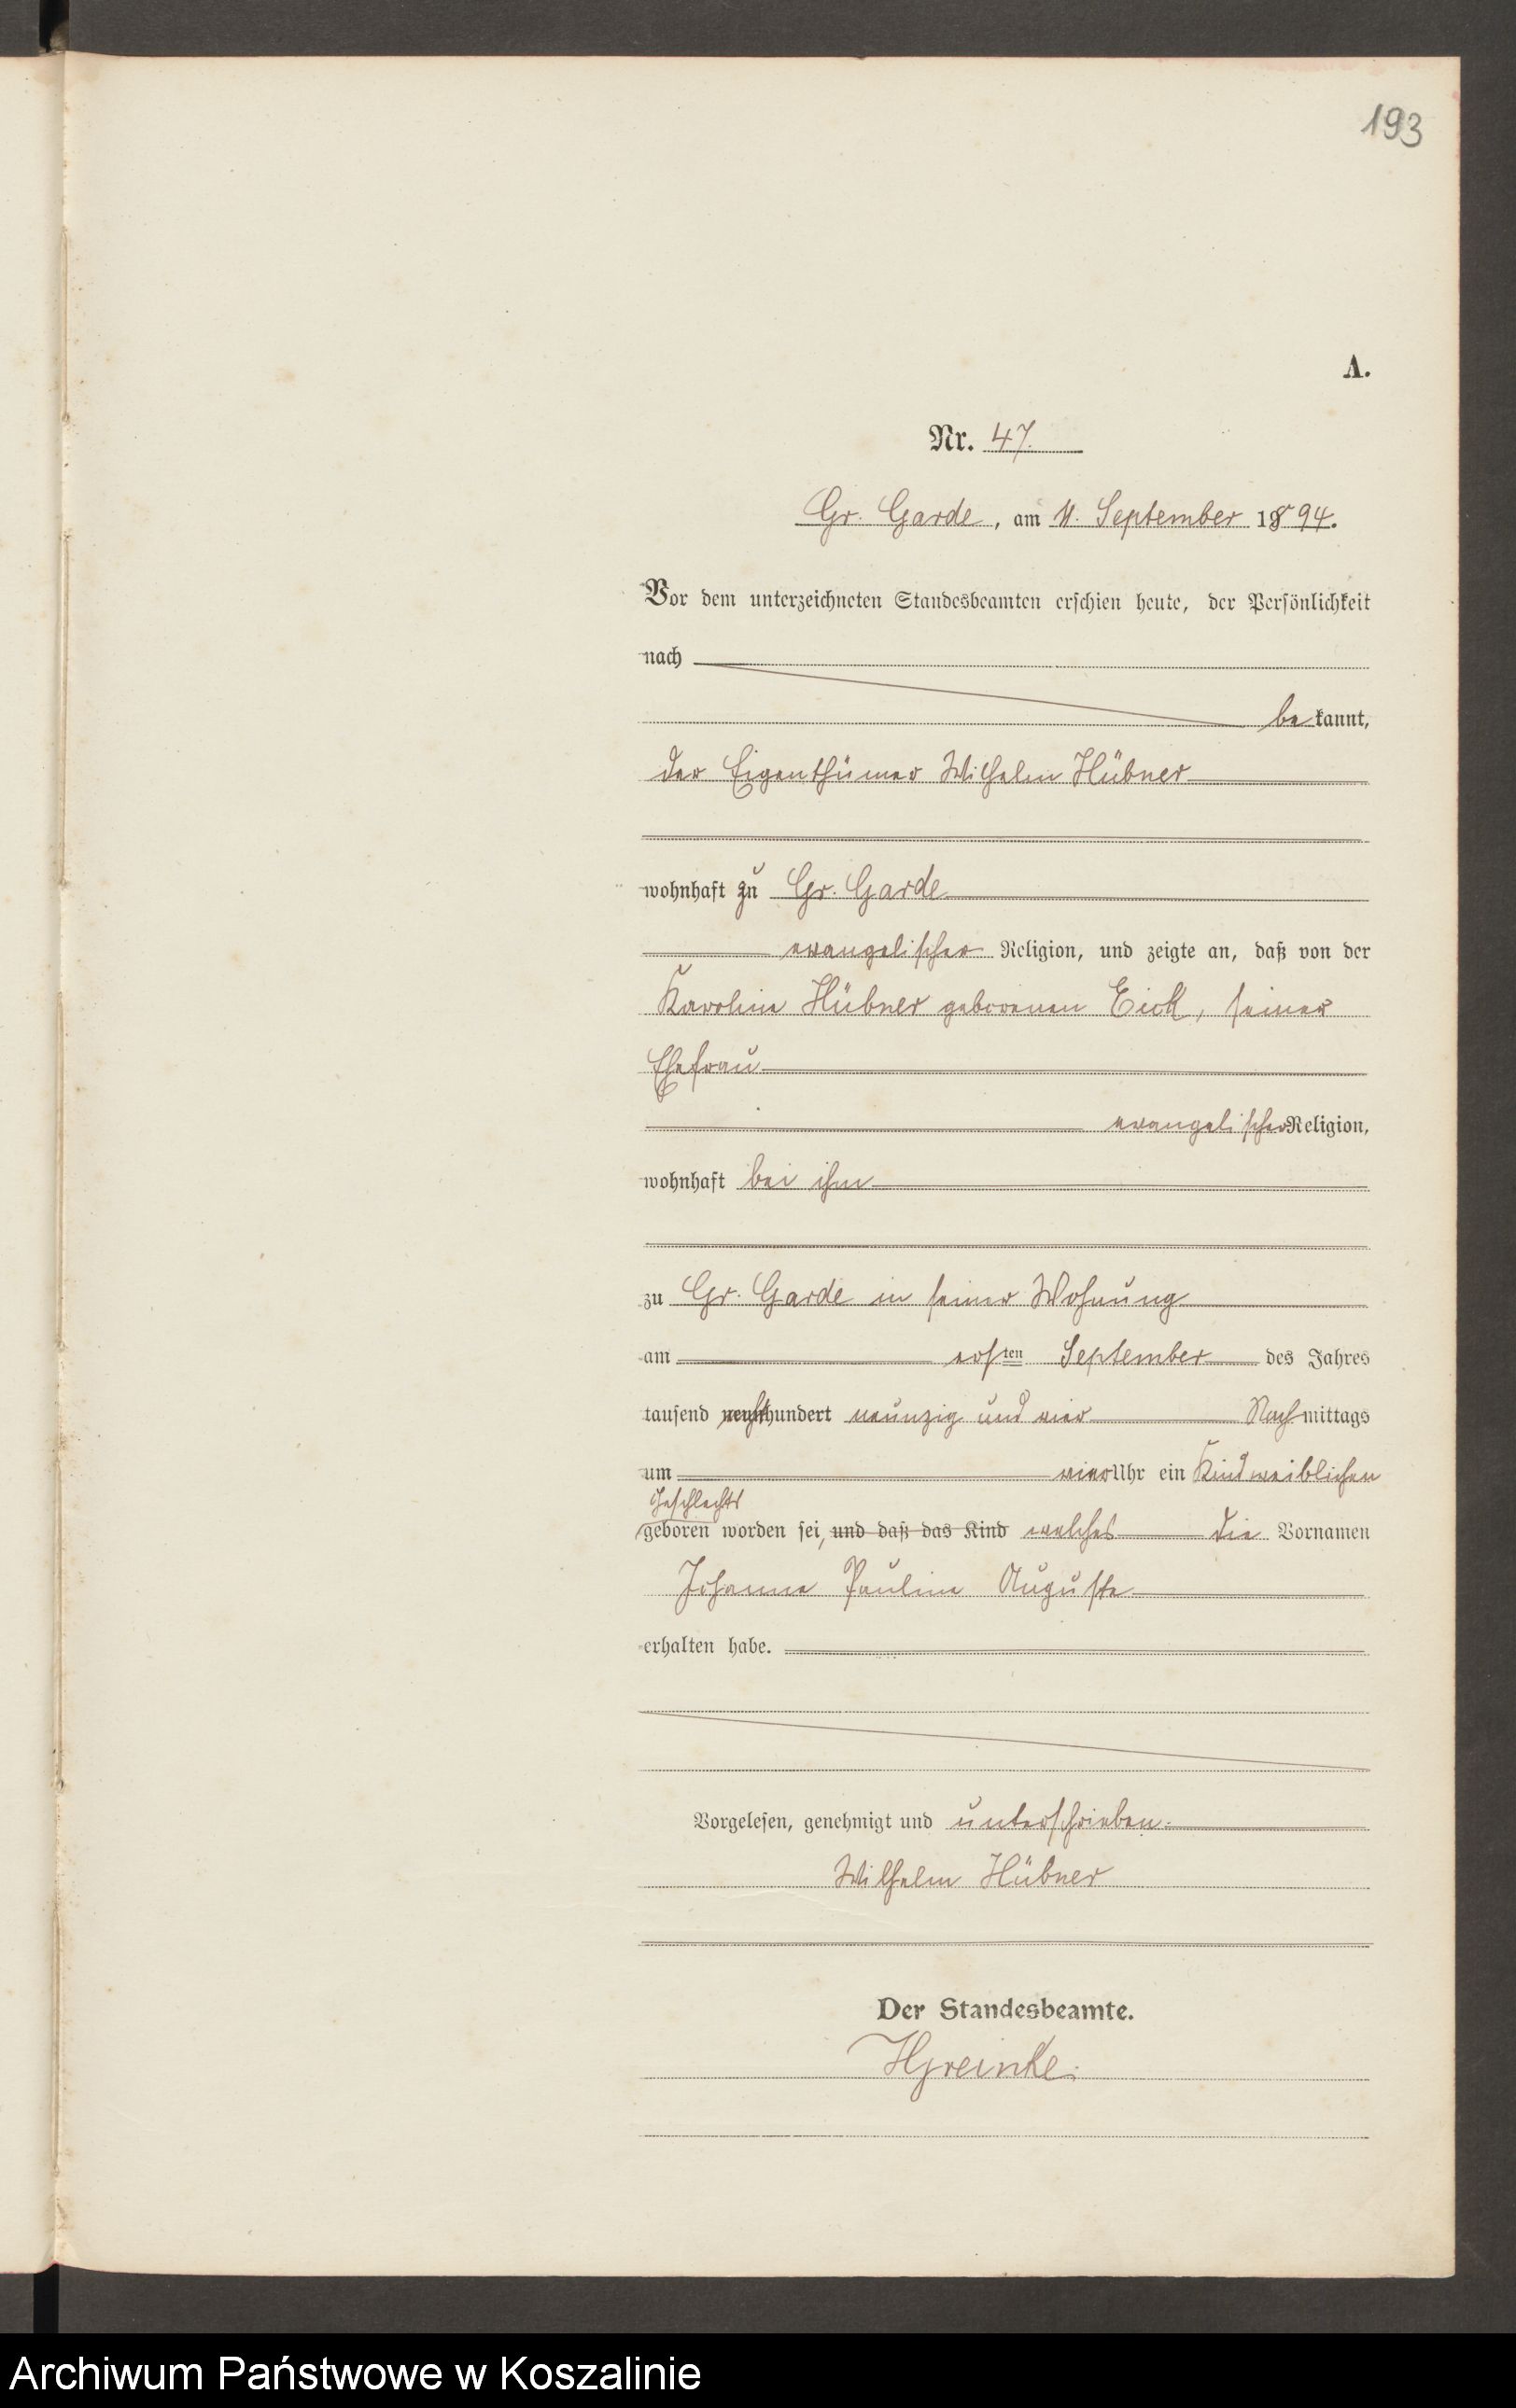 193
A.
Nr. 47.
Gr. Garde, am 11. September 1894.
Vor dem unterzeichneten Standesbeamten erschien heute, der Persönlichkeit
nach
be kannt,
der Eigenthümer Wilhelm Hübner
wohnhaft zu Gr. Garde
evangelischer Religion, und zeigte an, daß von der
Karoline Hübner geborenen Eick, seiner
Ehefrau
evangelischer Religion,
wohnhaft bei ihm
zu Gr. Garde in seiner Wohnung
am ersten September des Jahres
tausend achthundert neunzig und vier Nachmittags
um vier Uhr ein Kind weiblichen
Geschlechts
geboren worden sei, und daß das Kind welches die Vornamen
Johanne Pauline Auguste
erhalten habe.
Vorgelesen, genehmigt und unterschrieben.
Wilhelm Hübner
Der Standesbeamte.
Archiwum Państwowe w Koszalinie